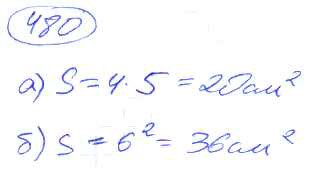 480
а) S = 4 · 5 = 20 см²
б) S = 6² = 36 см²